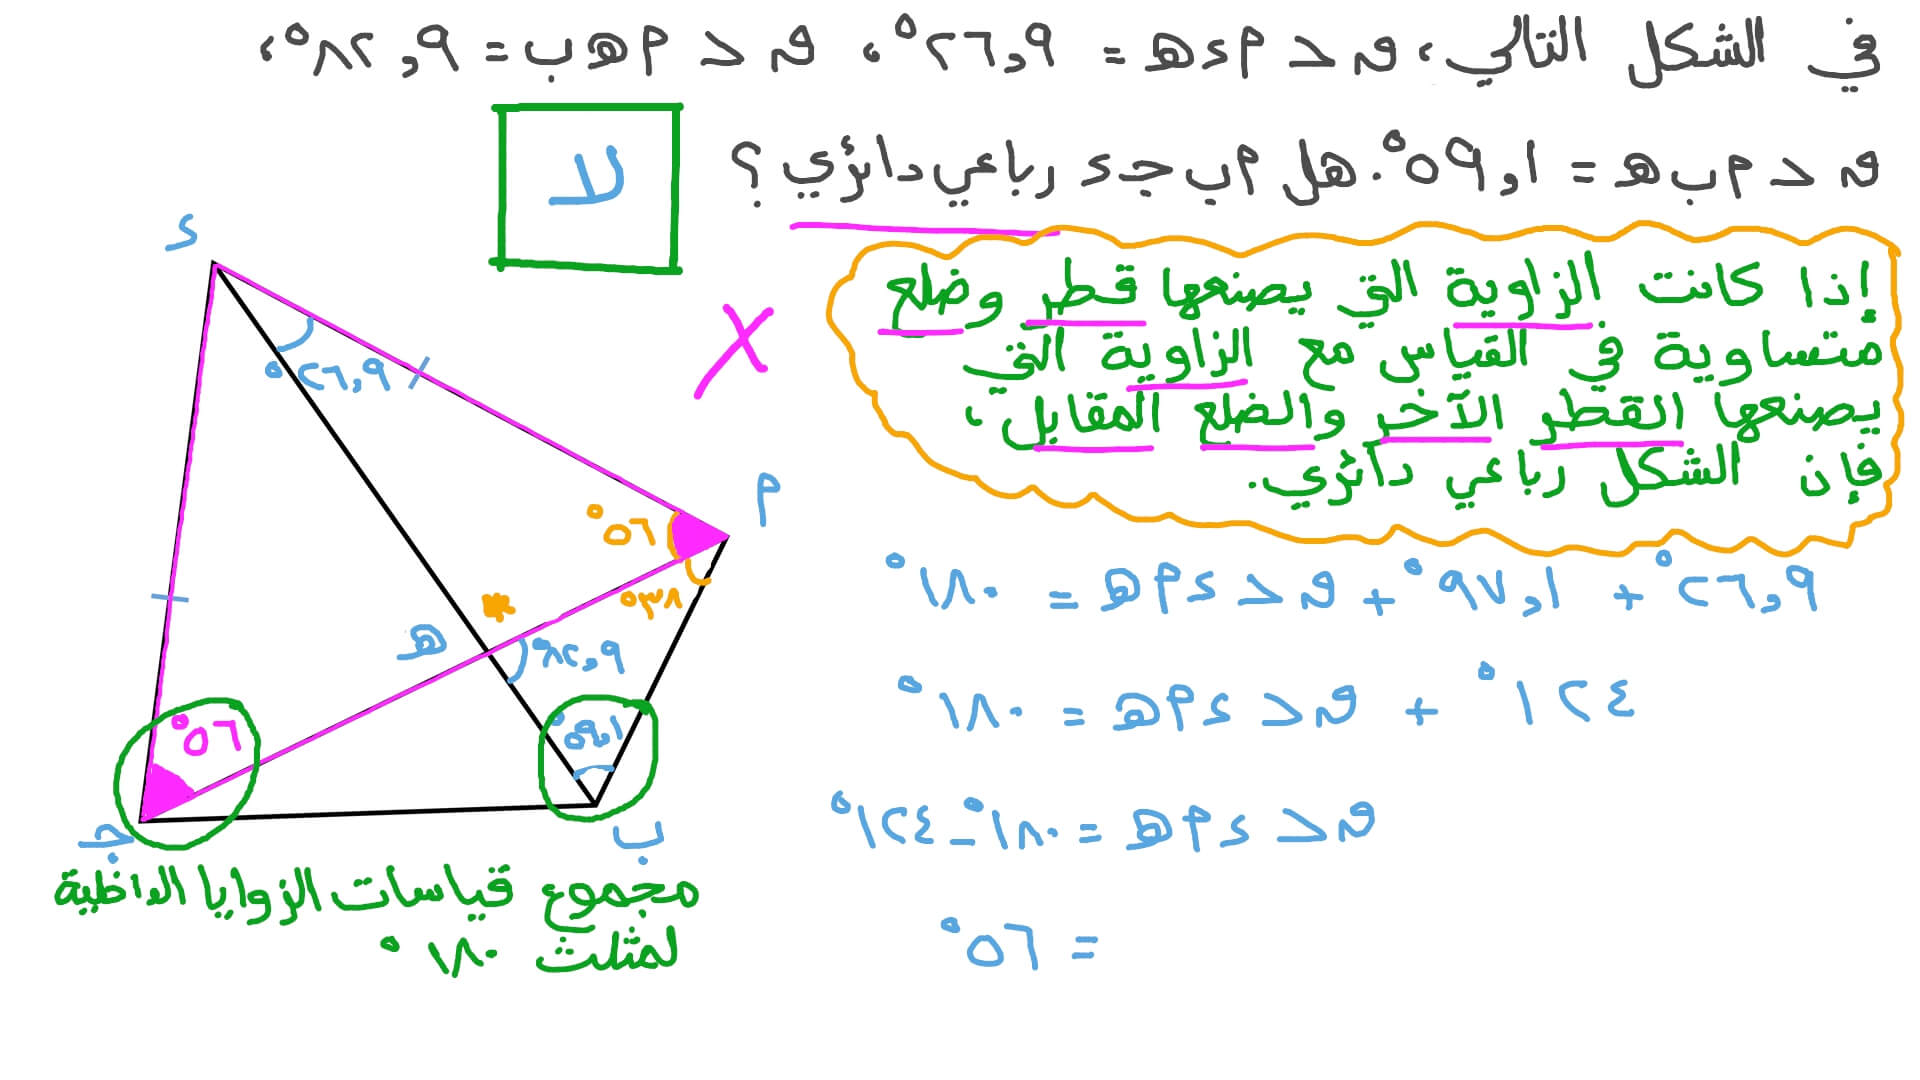 في الشكل التالي، ق∠أدهـ = ٢٦,٩°، ق∠أهـب = ٨٢,٩°،
ق∠أبهـ = ٥٩,١°. هل أب جـد رباعي دائري؟
لا
إذا كانت الزاوية التي يصنعها قطر وضلع
متساوية في القياس مع الزاوية التي
يصنعها القطر الآخر والضلع المقابل،
فإن الشكل رباعي دائري.
د
٢٦,٩°
أ
٥٦°
٣٨°
هـ
٨٢,٩°
٥٦°
٥٩,١°
جـ
ب
٢٦,٩° + ٩٧,١° + ق∠دأهـ = ١٨٠°
١٢٤° + ق∠دأهـ = ١٨٠°
ق∠دأهـ = ١٨٠° - ١٢٤°
= ٥٦°
مجموع قياسات الزوايا الداخلية
لمثلث ١٨٠°